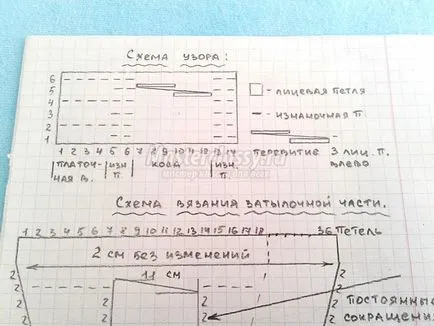 Схема узора:
6
5
4
3
2
1
- лицевая петля
- изнаночная п.
1 2 3 4 5 6 7 8 9 10 11 12 13 14
платоч-
ная в.
изн.
п.
коса
изн.
п.
перевитие 3 лиц. п.
влево
Схема вязания затылочной части.
1 2 3 4 5 6 7 8 9 10 11 12 13 14 15 16 17 18
36 петель
2 см без изменений
11 см
2
2
2
2
2
2
2
2
постоянные
сокращения